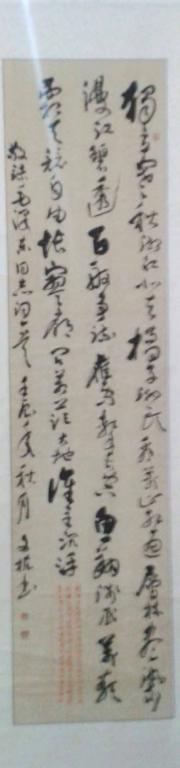 独立寒秋湘江北去橘子洲头看万山红遍层林尽染
漫江碧透百舸争流鹰击长空鱼翔浅底万类
霜天竞自由怅寥廓问苍茫大地谁主沉浮
敬录毛泽东同志词一首 秋月 书